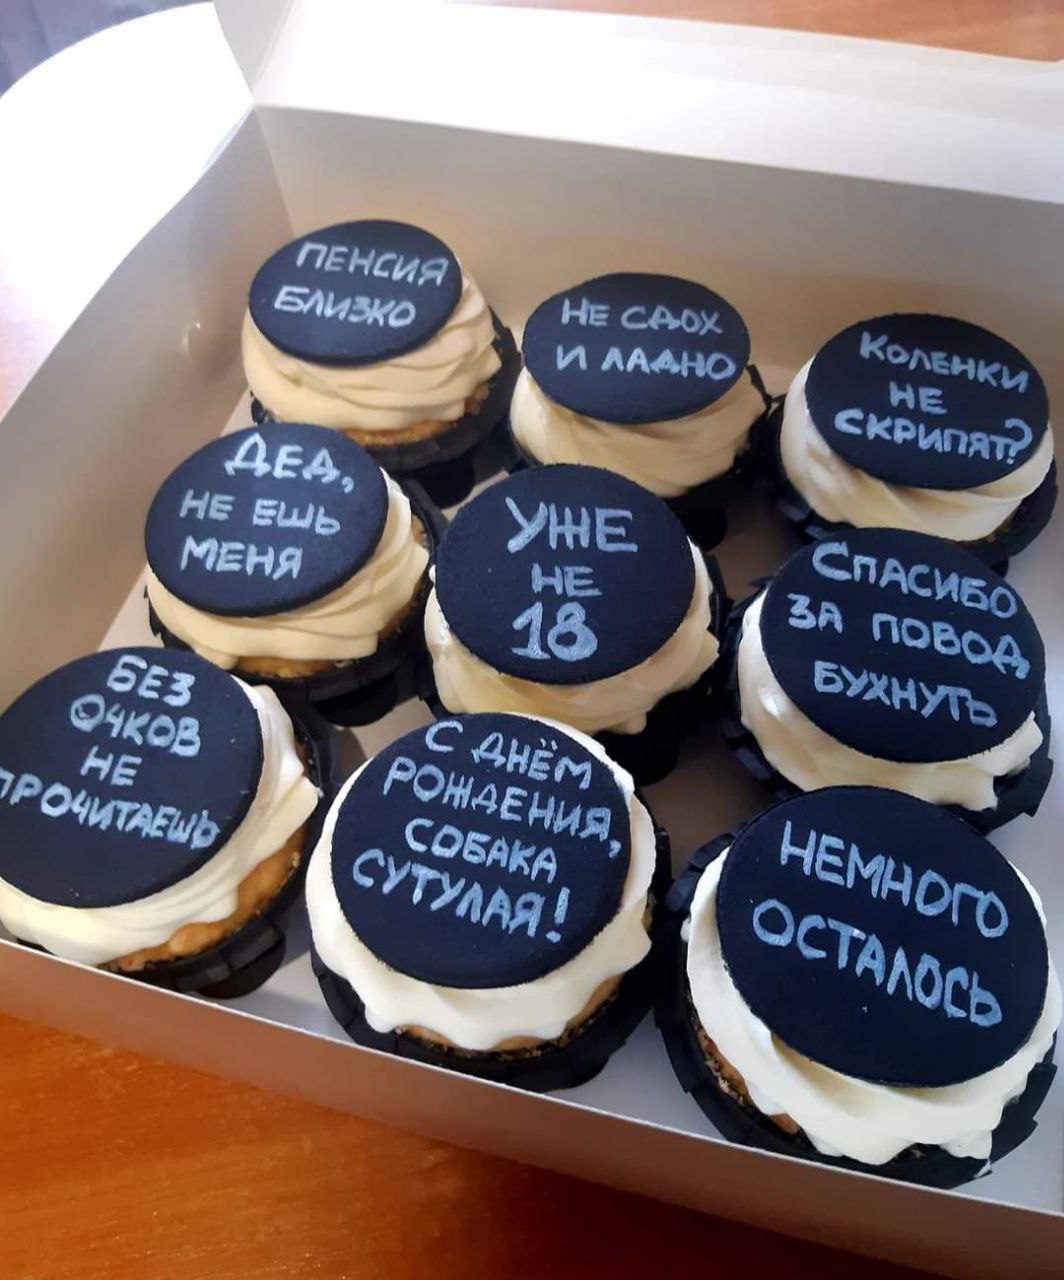 ПЕНСИЯ
БЛИЗКО
НЕ СДОХ
И ЛАДНО
КОЛЕНКИ
НЕ
СКРИПЯТ?
ДЕД,
НЕ ЕШЬ
МЕНЯ
УЖЕ
НЕ
18
СПАСИБО
ЗА ПОВОД
БУХНУТЬ
БЕЗ
ОЧКОВ
НЕ
ПРОЧИТАЕШЬ
С ДНЁМ
РОЖДЕНИЯ,
СОБАКА
СУТУЛАЯ!
НЕМНОГО
ОСТАЛОСЬ